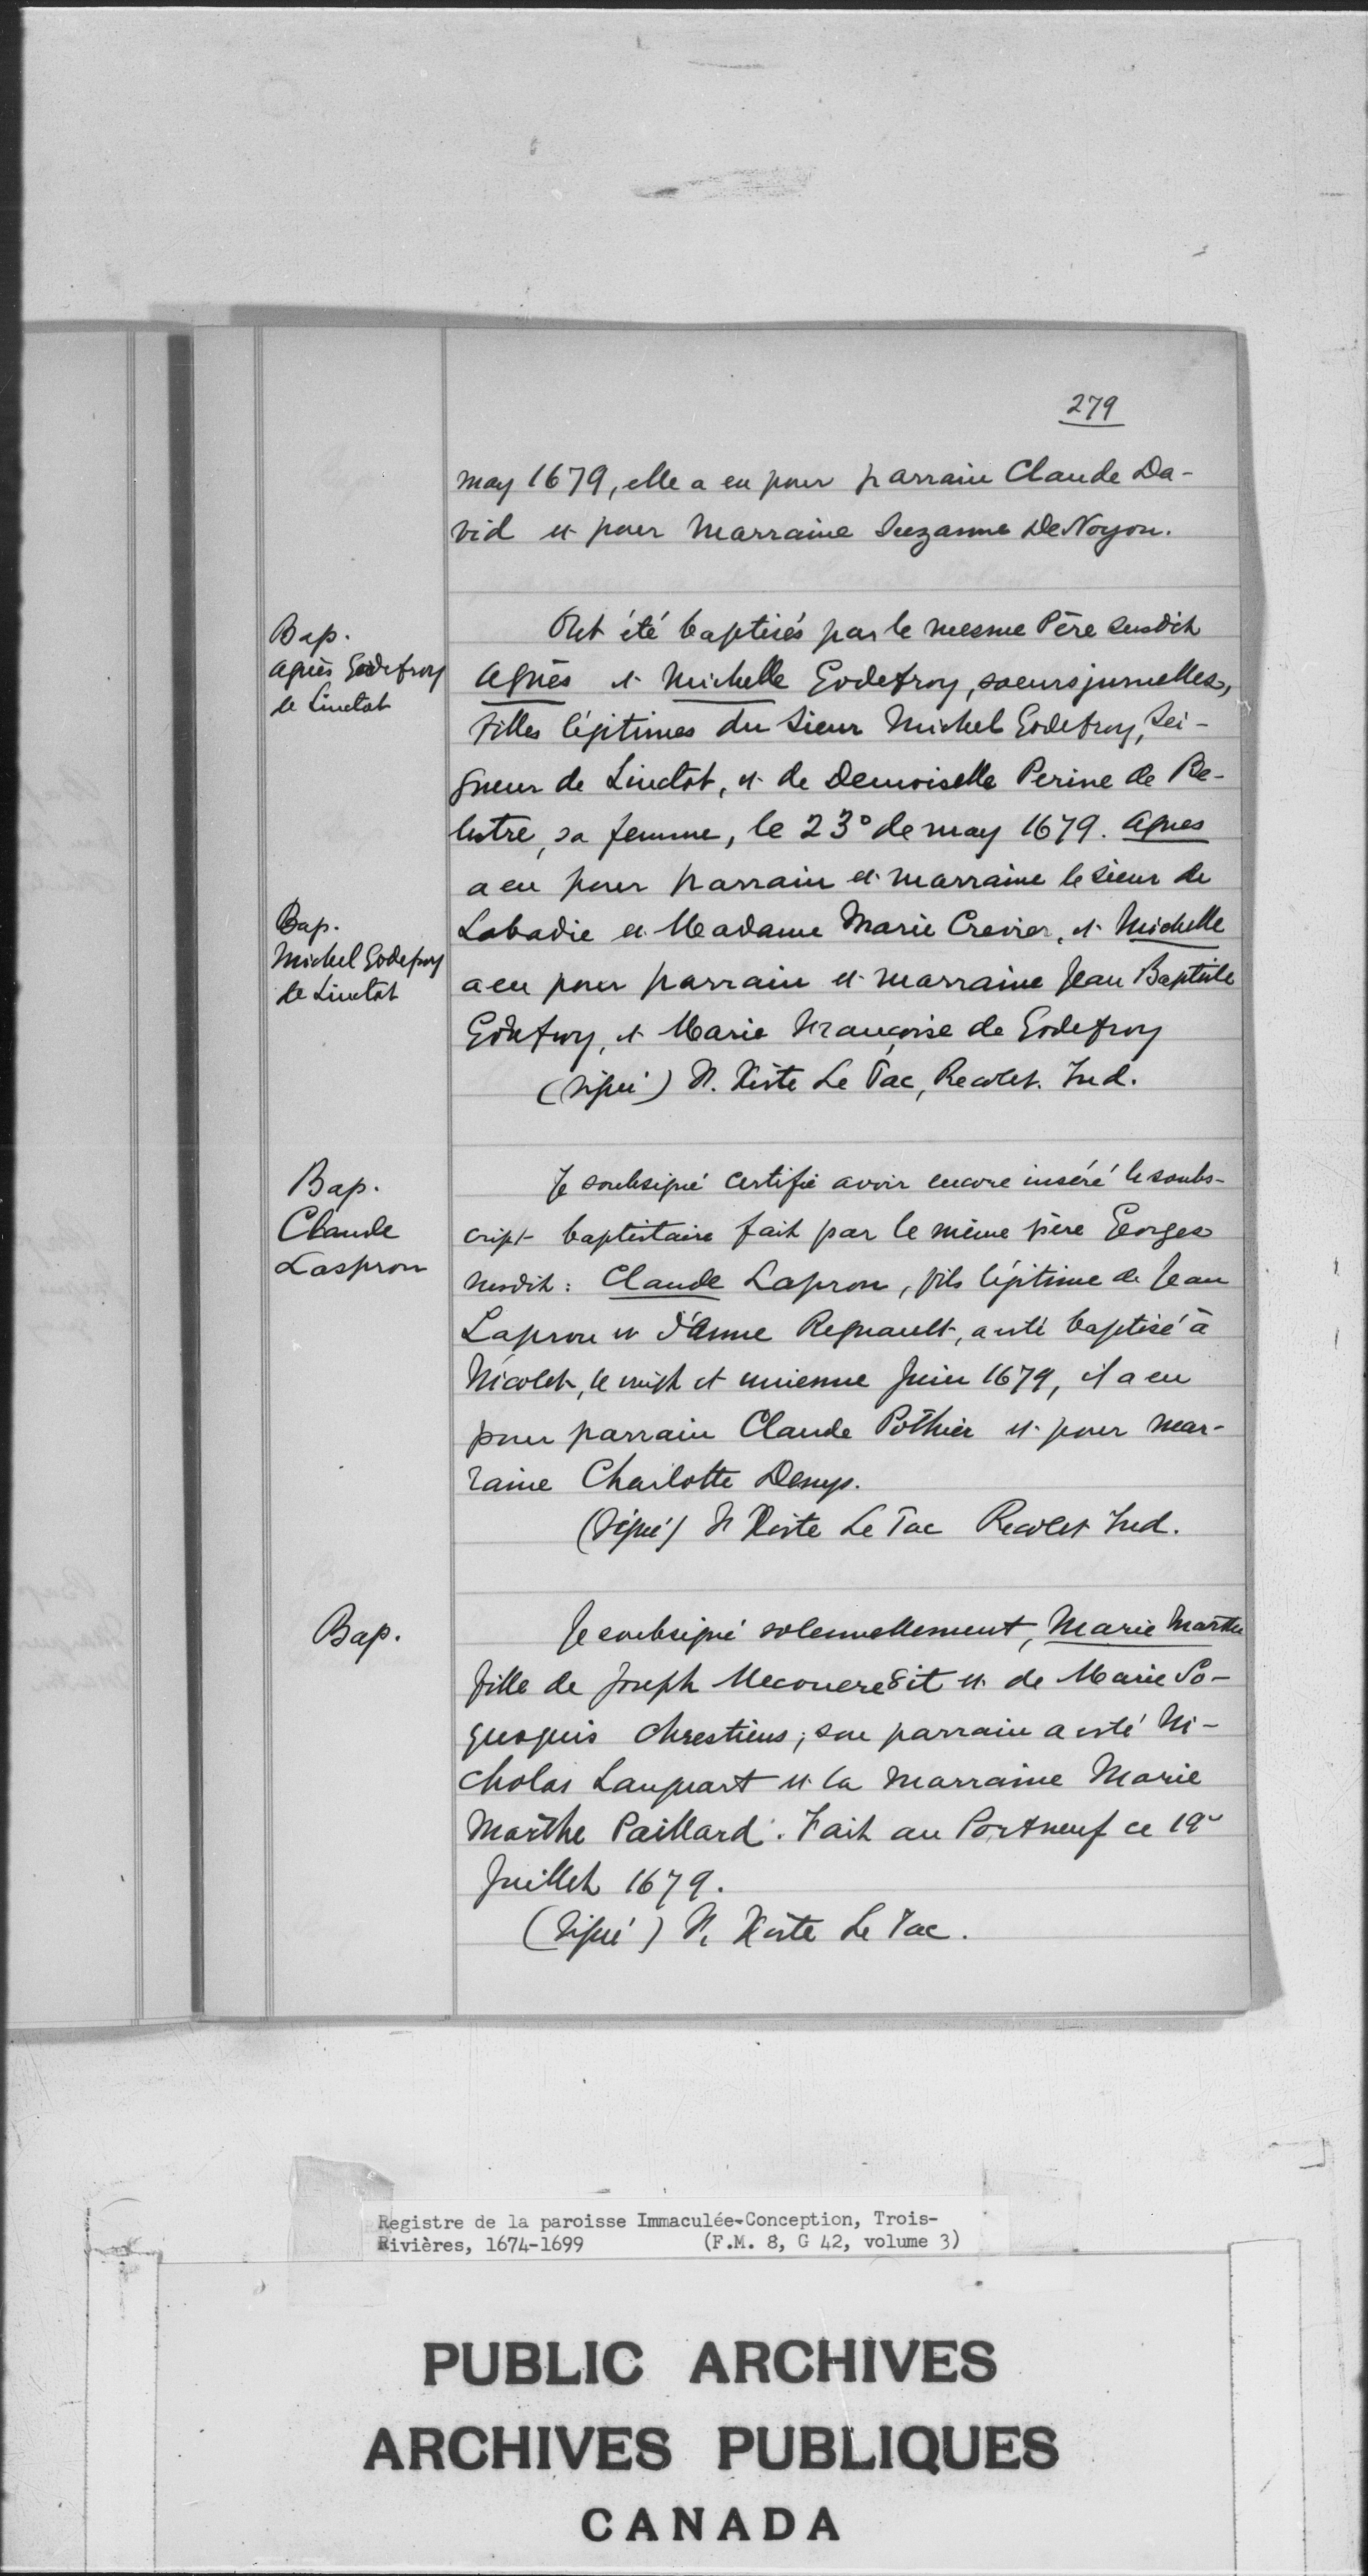 279
may 1679, elle a eu pour parrain Claude Da-
vid et pour Marraine Suzanne DeNoyon.
Bap.
Agnès Godefroy
de Linctot
Ont été baptisés par le mesme Père susdit
Agnès et Michelle Godefroy, soeurs jumelles,
filles légitimes du Sieur Michel Godefroy, Sei-
gneur de Linctot, et de Demoiselle Perine de Be-
lestre, sa femme, le 23° de may 1679. Agnes
a eu pour parrain et marraine le Sieur de
Bap.
Michel Godefroy
de Linctot
Labadie et Madame Marie Crevier, et Michelle
a eu pour parrain et marraine Jean Baptiste
Godefroy, et Marie Françoise de Godefroy
(Signé) N. Xiste Le Tac, Recolet. Ind.
Bap.
Claude
Laspron
Je soubsigné certifie avoir encore inséré le soubs-
cript baptistaire fait par le même père Georges
susdit: Claude Lapron, fils légitime de Jean
Lapron et d'Anne Regnault, a esté baptisé à
Nicolet, le vingt et unienme Juin 1679, il a eu
pour parrain Claude Pothier et pour mar-
raine Charlotte Denys.
(Signé) N Xiste Le Tac Recolet Ind.
Bap.
Je soubsigné solennellement, Marie Marthe
fille de Joseph Mecouere8it et de Marie So-
quoquis Chrestiens; son parrain a esté Ni-
cholas Lanquart et la marraine Marie
Marthe Paillard. Fait au Portneuf ce 19e
Juillet 1679.
(Signé) N. Xiste Le Tac.
Registre de la paroisse Immaculée-Conception, Trois-
Rivières, 1674-1699 (F.M. 8, G 42, volume 3)
PUBLIC ARCHIVES
ARCHIVES PUBLIQUES
CANADA